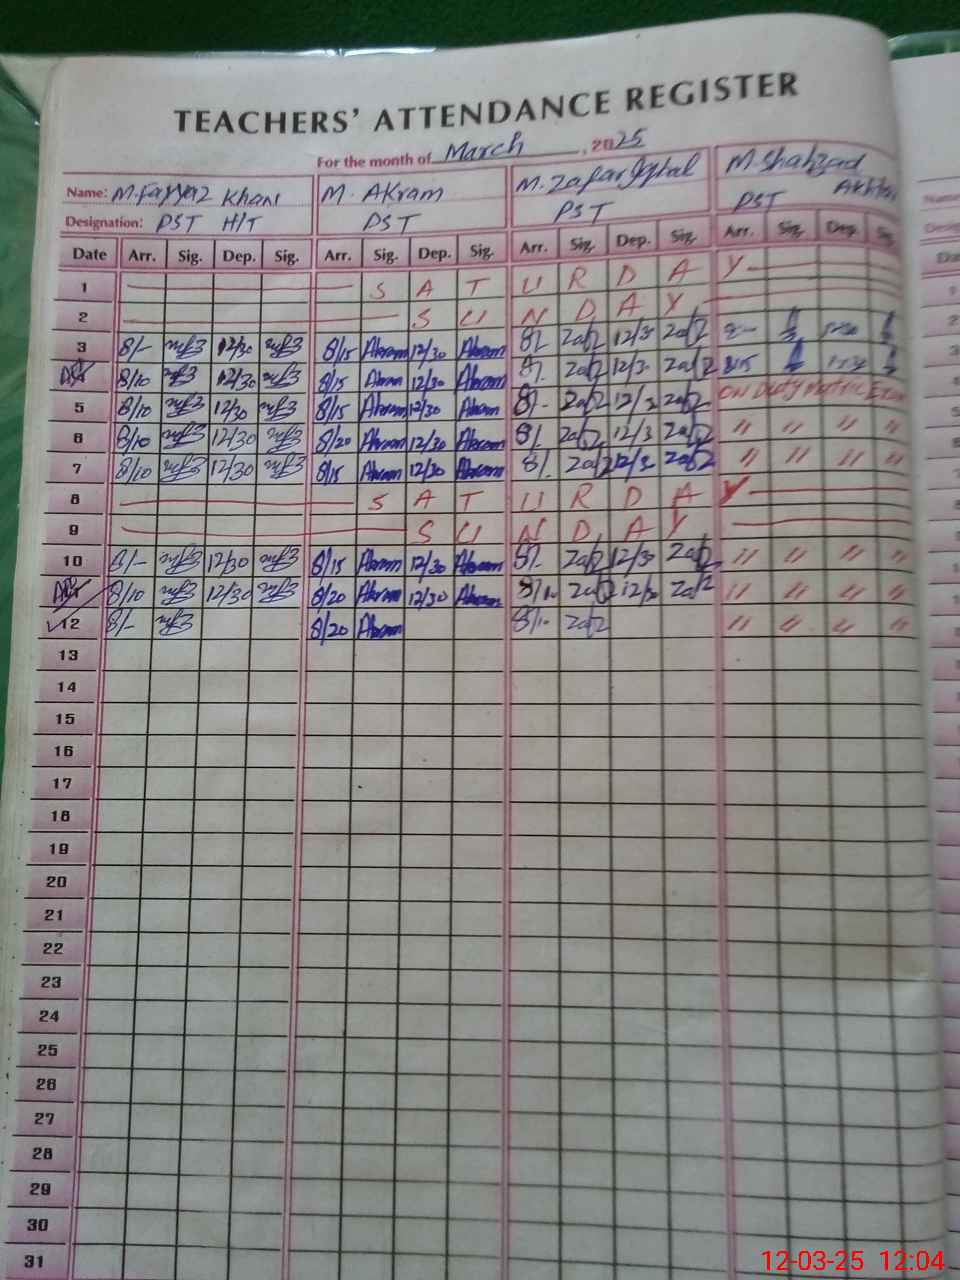 TEACHERS' ATTENDANCE REGISTER
For the month of March, 2025
Name: M. Fayyaz Khan M. Akram M. Zafar Iqbal M. Shahzad Akhtar
Designation: PST H/T PST PST PST
Date Arr. Sig. Dep. Sig. Arr. Sig. Dep. Sig. Arr. Sig. Dep. Sig. Arr. Sig. Dep. Sig.
1 S A T U R D A Y
2 S U N D A Y
3 8/- 12/30 8/15 Akram 12/30 Akram 8/- 12/30
8/10 12/30 8/15 Akram 12/30 Akram 8/- 12/30 8/15
5 8/10 12/30 8/15 Akram 12/30 Akram 8/- 12/3 ON Duty Matric Exam
6 8/10 12/30 8/20 Akram 12/30 Akram 8/- 12/3 " " " "
7 8/10 12/30 8/15 Akram 12/30 Akram 8/- 12/3 " " " "
8 S A T U R D A Y
9 S U N D A Y
10 8/- 12/30 8/15 Akram 12/30 Akram 8/- 12/30 " " " "
8/10 12/30 8/20 Akram 12/30 Akram 8/10 12/30 " " " "
12 8/- 8/20 Akram 8/10 " " " "
13
14
15
16
17
18
19
20
21
22
23
24
25
26
27
28
29
30
31
12-03-25 12:04